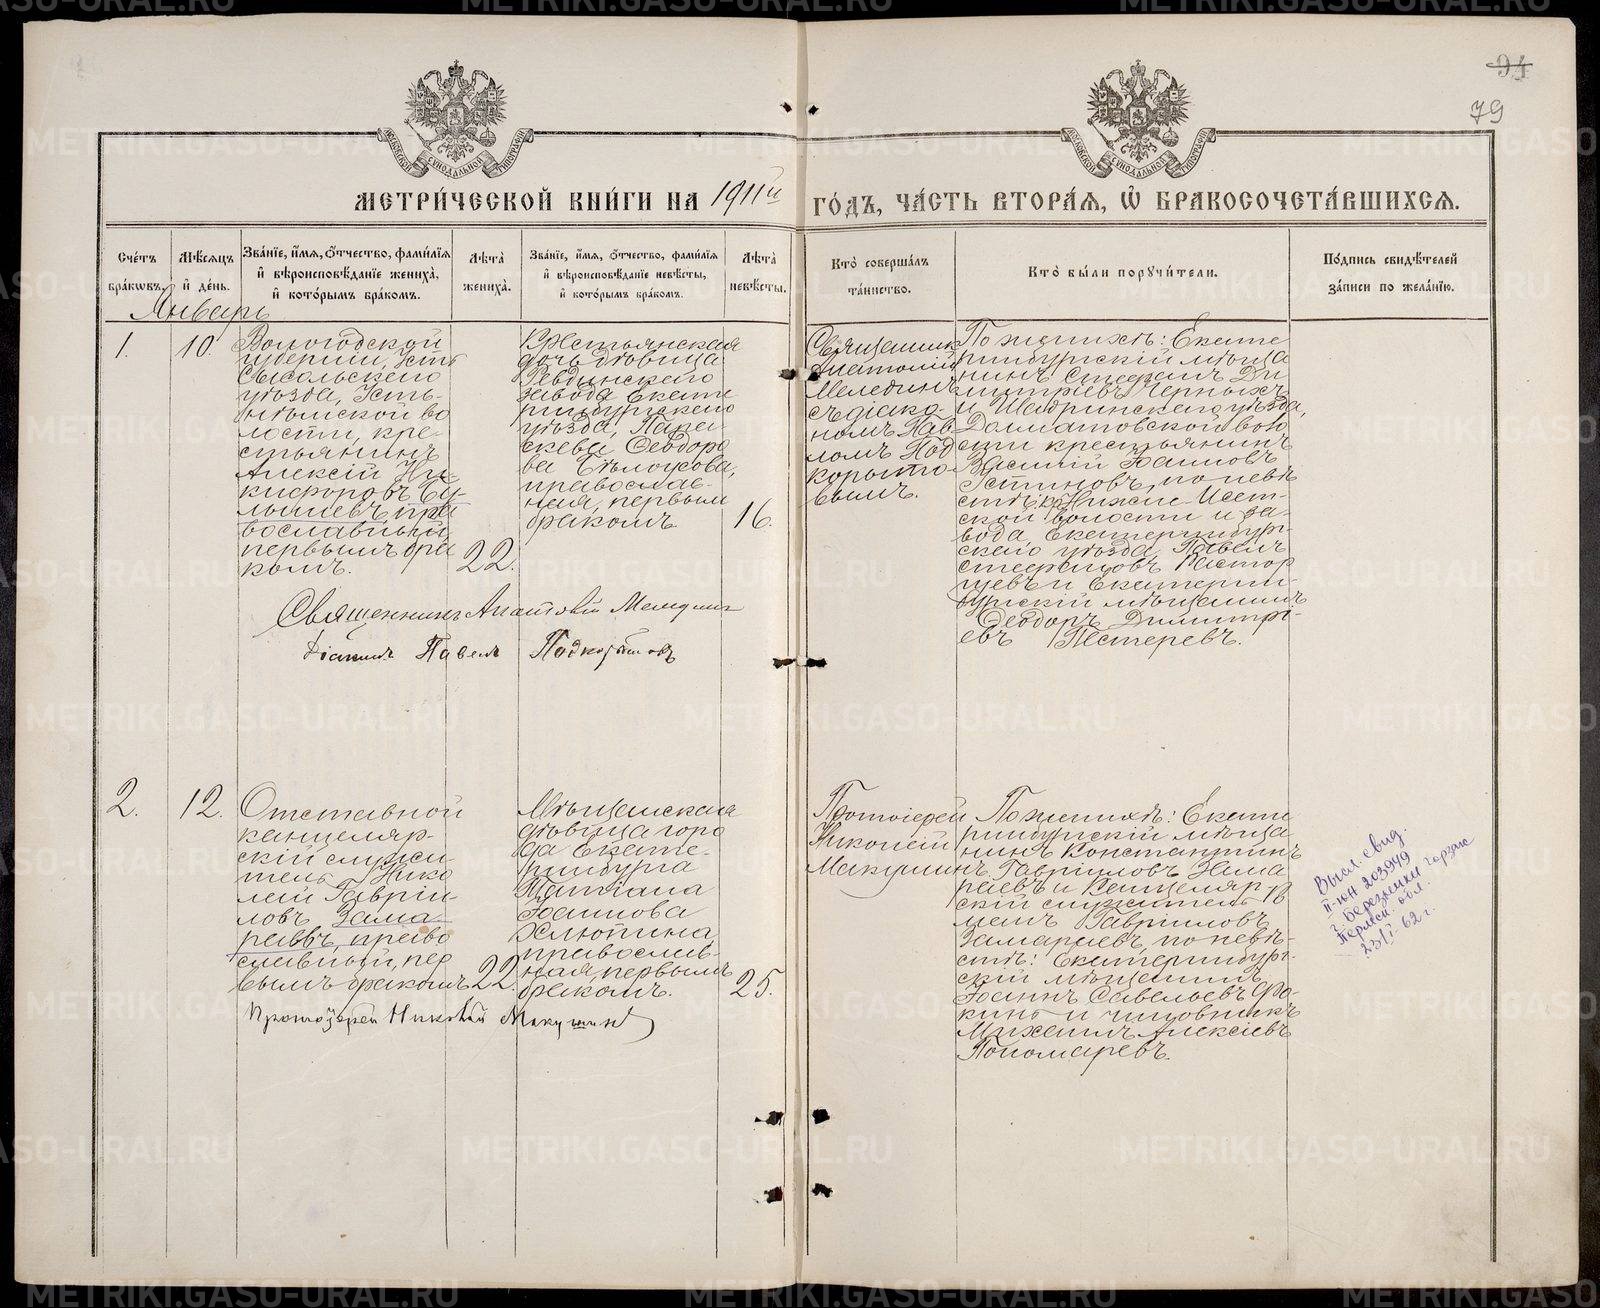 94
79
МЕТРИ́ЧЕСКОЙ КНИ́ГИ НА 1911й ГО́ДЪ, ЧА́СТЬ ВТОРА́Я, Ѡ БРАКОСОЧЕТА́ВШИХСЯ.
Сче́тъ бра́ковъ.
Мѣ́сяцъ и҆ де́нь.
Зва́нїе, и҆́мя, ѻ҆́тчество, фами́лїя и҆ вѣроисповѣ́данїе жениха̀, и҆ кото́рымъ бра́комъ.
Лѣ́та жениха̀.
Зва́нїе, и҆́мя, ѻ҆́тчество, фами́лїя и҆ вѣроисповѣ́данїе невѣ́сты, и҆ кото́рымъ бра́комъ.
Лѣ́та невѣ́сты.
Кто̀ соверша́лъ та́инство.
Кто̀ бы́ли порꙋчи́тели.
По́дпись свидѣ́телей за́писи по жела́нїю.
Январь
1.
10.
Вологодской
губерніи, Усть
Сысольскаго
уѣзда, Усть-
волости, кре-
стьянинъ
Алексій Ни-
кифоровъ
православный,
первымъ бра
комъ.
22.
Крестьянская
дочь дѣвица
Ревдинскаго
завода Екате
ринбургскаго
уѣзда, Парас
кева Ѳеодоро
ва Бѣлоусова,
православ-
ная, первым
бракомъ.
16.
Священникъ
Анатолій
Мелединъ
съ діако-
номъ Пав
ломъ Под
корыто
вымъ.
По женихѣ: Екате
ринбургскій мѣща
нинъ Стефанъ Ди
митріевъ Черныхъ
и Шадринскаго уѣзда,
Долматовской воло
сти крестьянинъ
Василій Іоанновъ
Устиновъ, по невѣ
стѣ: Нижне-Исет-
ской волости и за-
вода, Екатеринбург-
скаго уѣзда, Павелъ
Стефановъ Растор
гуевъ и Екатерин-
бургскій мѣщанинъ
Ѳеодоръ Димитрі-
евъ Пестеревъ.
Священникъ Анатолій Меледин
Діаконъ Павелъ Подкорытовъ
2.
12.
Отставной
канцеляр-
скій служи-
тель Нико
лай Гавріи-
ловъ Зама
раевъ, право
славный, пер
вымъ бракомъ
22.
Мѣщанская
дѣвица горо
да Екате-
ринбурга
Татіана
Іоаннова
Хлюпина
православ-
ная, первымъ
бракомъ.
25.
Протоіерей
Николай
Макушинъ
По женихѣ: Екате
ринбургскій мѣща
нинъ Константинъ
Гавріиловъ Зама
раевъ и канцеляр
скій служитель
Гавріиловъ
Замараевъ, по невѣ-
стѣ: Екатеринбург-
скій мѣщанинъ
Іоаннъ Савельевъ Фо-
кинъ и чиновникъ
Михаилъ Алексіевъ
Пономаревъ.
Протоіерей Николай Макушинъ
Высл. свид.
II-юн 203949
г. Березники горзагс
Перм. обл.
23/I-62 г.
METRIKI.GASO-URAL.RU